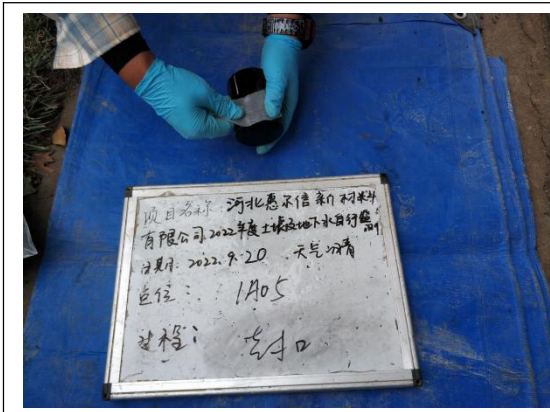 项目名称:河北惠尔信新材料
有限公司2022年度土壤及地下水自行监测
日期:2022.9.20 天气:晴
点位:1A05
过程:封口